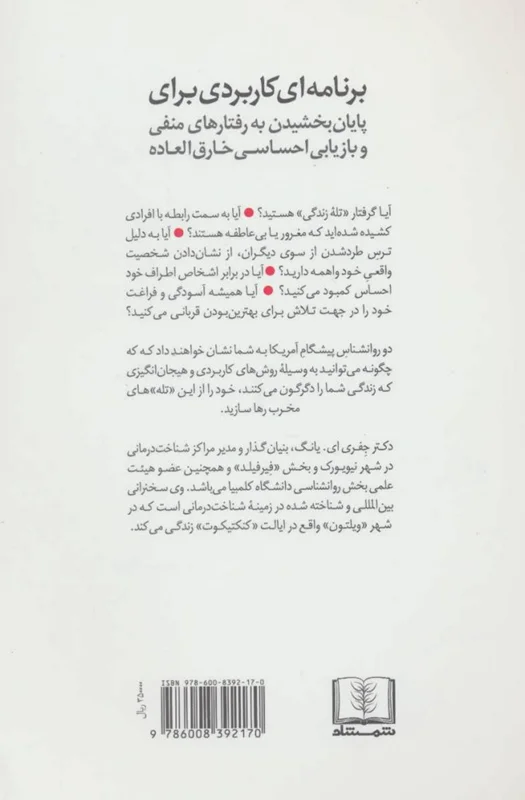 برنامه‌ای کاربردی برای
پایان بخشیدن به رفتارهای منفی
و بازیابی احساسی خارق العاده
آیا گرفتار «تلهٔ زندگی» هستید؟ ● آیا به سمت رابطه با افرادی
کشیده شده‌اید که مغرور یا بی‌عاطفه هستند؟ ● آیا به دلیل
ترسِ طردشدن از سوی دیگران، از نشان‌دادن شخصیت
واقعیِ خود واهمه دارید؟ ● آیا در برابر اشخاص اطراف خود
احساس کمبود می‌کنید؟ ● آیا همیشه آسودگی و فراغت
خود را در جهت تلاش برای بهترین‌بودن قربانی می‌کنید؟
دو روانشناسِ پیشگامِ آمریکا به شما نشان خواهند داد که که
چگونه می‌توانید به وسیلهٔ روش‌های کاربردی و هیجان‌انگیزی
که زندگی شما را دگرگون می‌کنند، خود را از این «تله»های
مخرب رها سازید.
دکتر جِفری ای. یانگ، بنیان‌گذار و مدیر مراکز شناخت‌درمانی
در شهر نیویورک و بخش «فِیرفیلد» و همچنین عضو هیئت
علمی بخش روانشناسی دانشگاه کلمبیا می‌باشد. وی سخنرانی
بین‌المللی و شناخته شده در زمینهٔ شناخت‌درمانی است که در
شهر «ویلتون» واقع در ایالت «کنکتیکوت» زندگی می‌کند.
ISBN 978-600-8392-17-0
9 786008 392170
شمشاد